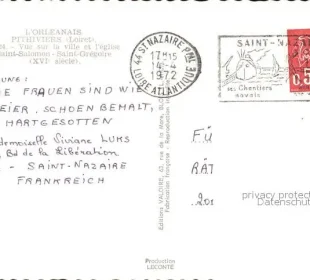 L'ORLEANAIS
PITHIVIERS (Loiret)
Vue sur la ville et l'église
Saint-Salomon - Saint-Grégoire
(XVIe siècle).
E FRAUEN SIND WIE
EIER, SCHOEN BEMALT,
HARTGESOTTEN
demoiselle Viviane LUKS
Bd de la Libération
- SAINT-NAZAIRE
FRANKREICH
44 ST NAZAIRE PPAL
17H15
14-4
1972
LOIRE ATLANTIQUE
SAINT-NAZ
ses Chantiers
navals
0,5
Editions VALOIRE,
Fabrication française - Reproduction
FÜ
RÄT
privacy protec
Datenschut
Production
LECONTE